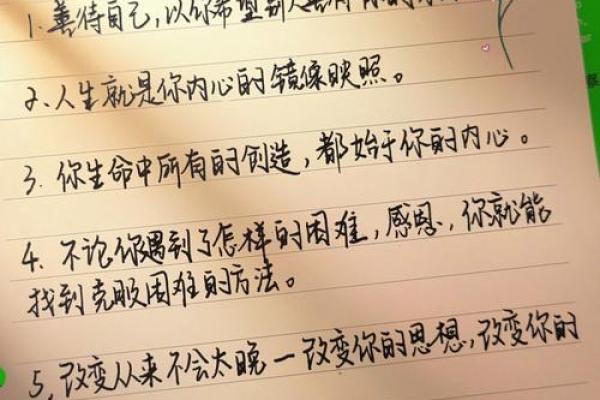 1.善待自己,以你希望别人善待
2、人生就是你内心的镜像映照。
3.你生命中所有的创造,都始于你的内心。
4.不论你遇到了怎样的困难,感恩,你就能
找到克服困难的方法。
5、改变从来不会太晚一改变你的思想,改变你的